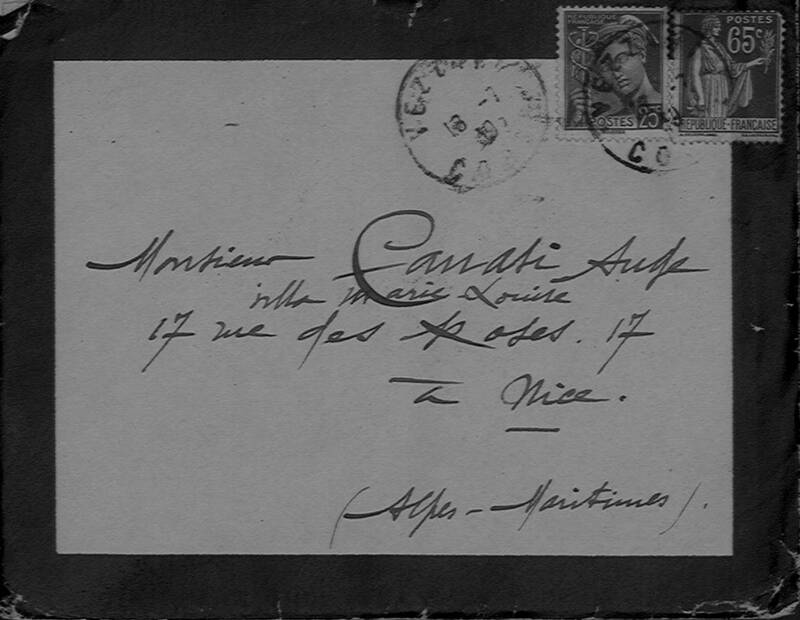 RÉPUBLIQUE FRANÇAISE
POSTES 25
POSTES
65c
RÉPUBLIQUE-FRANÇAISE
18 -7
CO
Monsieur Canati Ange
villa Marie Louise
17 rue des Roses. 17
à Nice.
(Alpes-Maritimes).